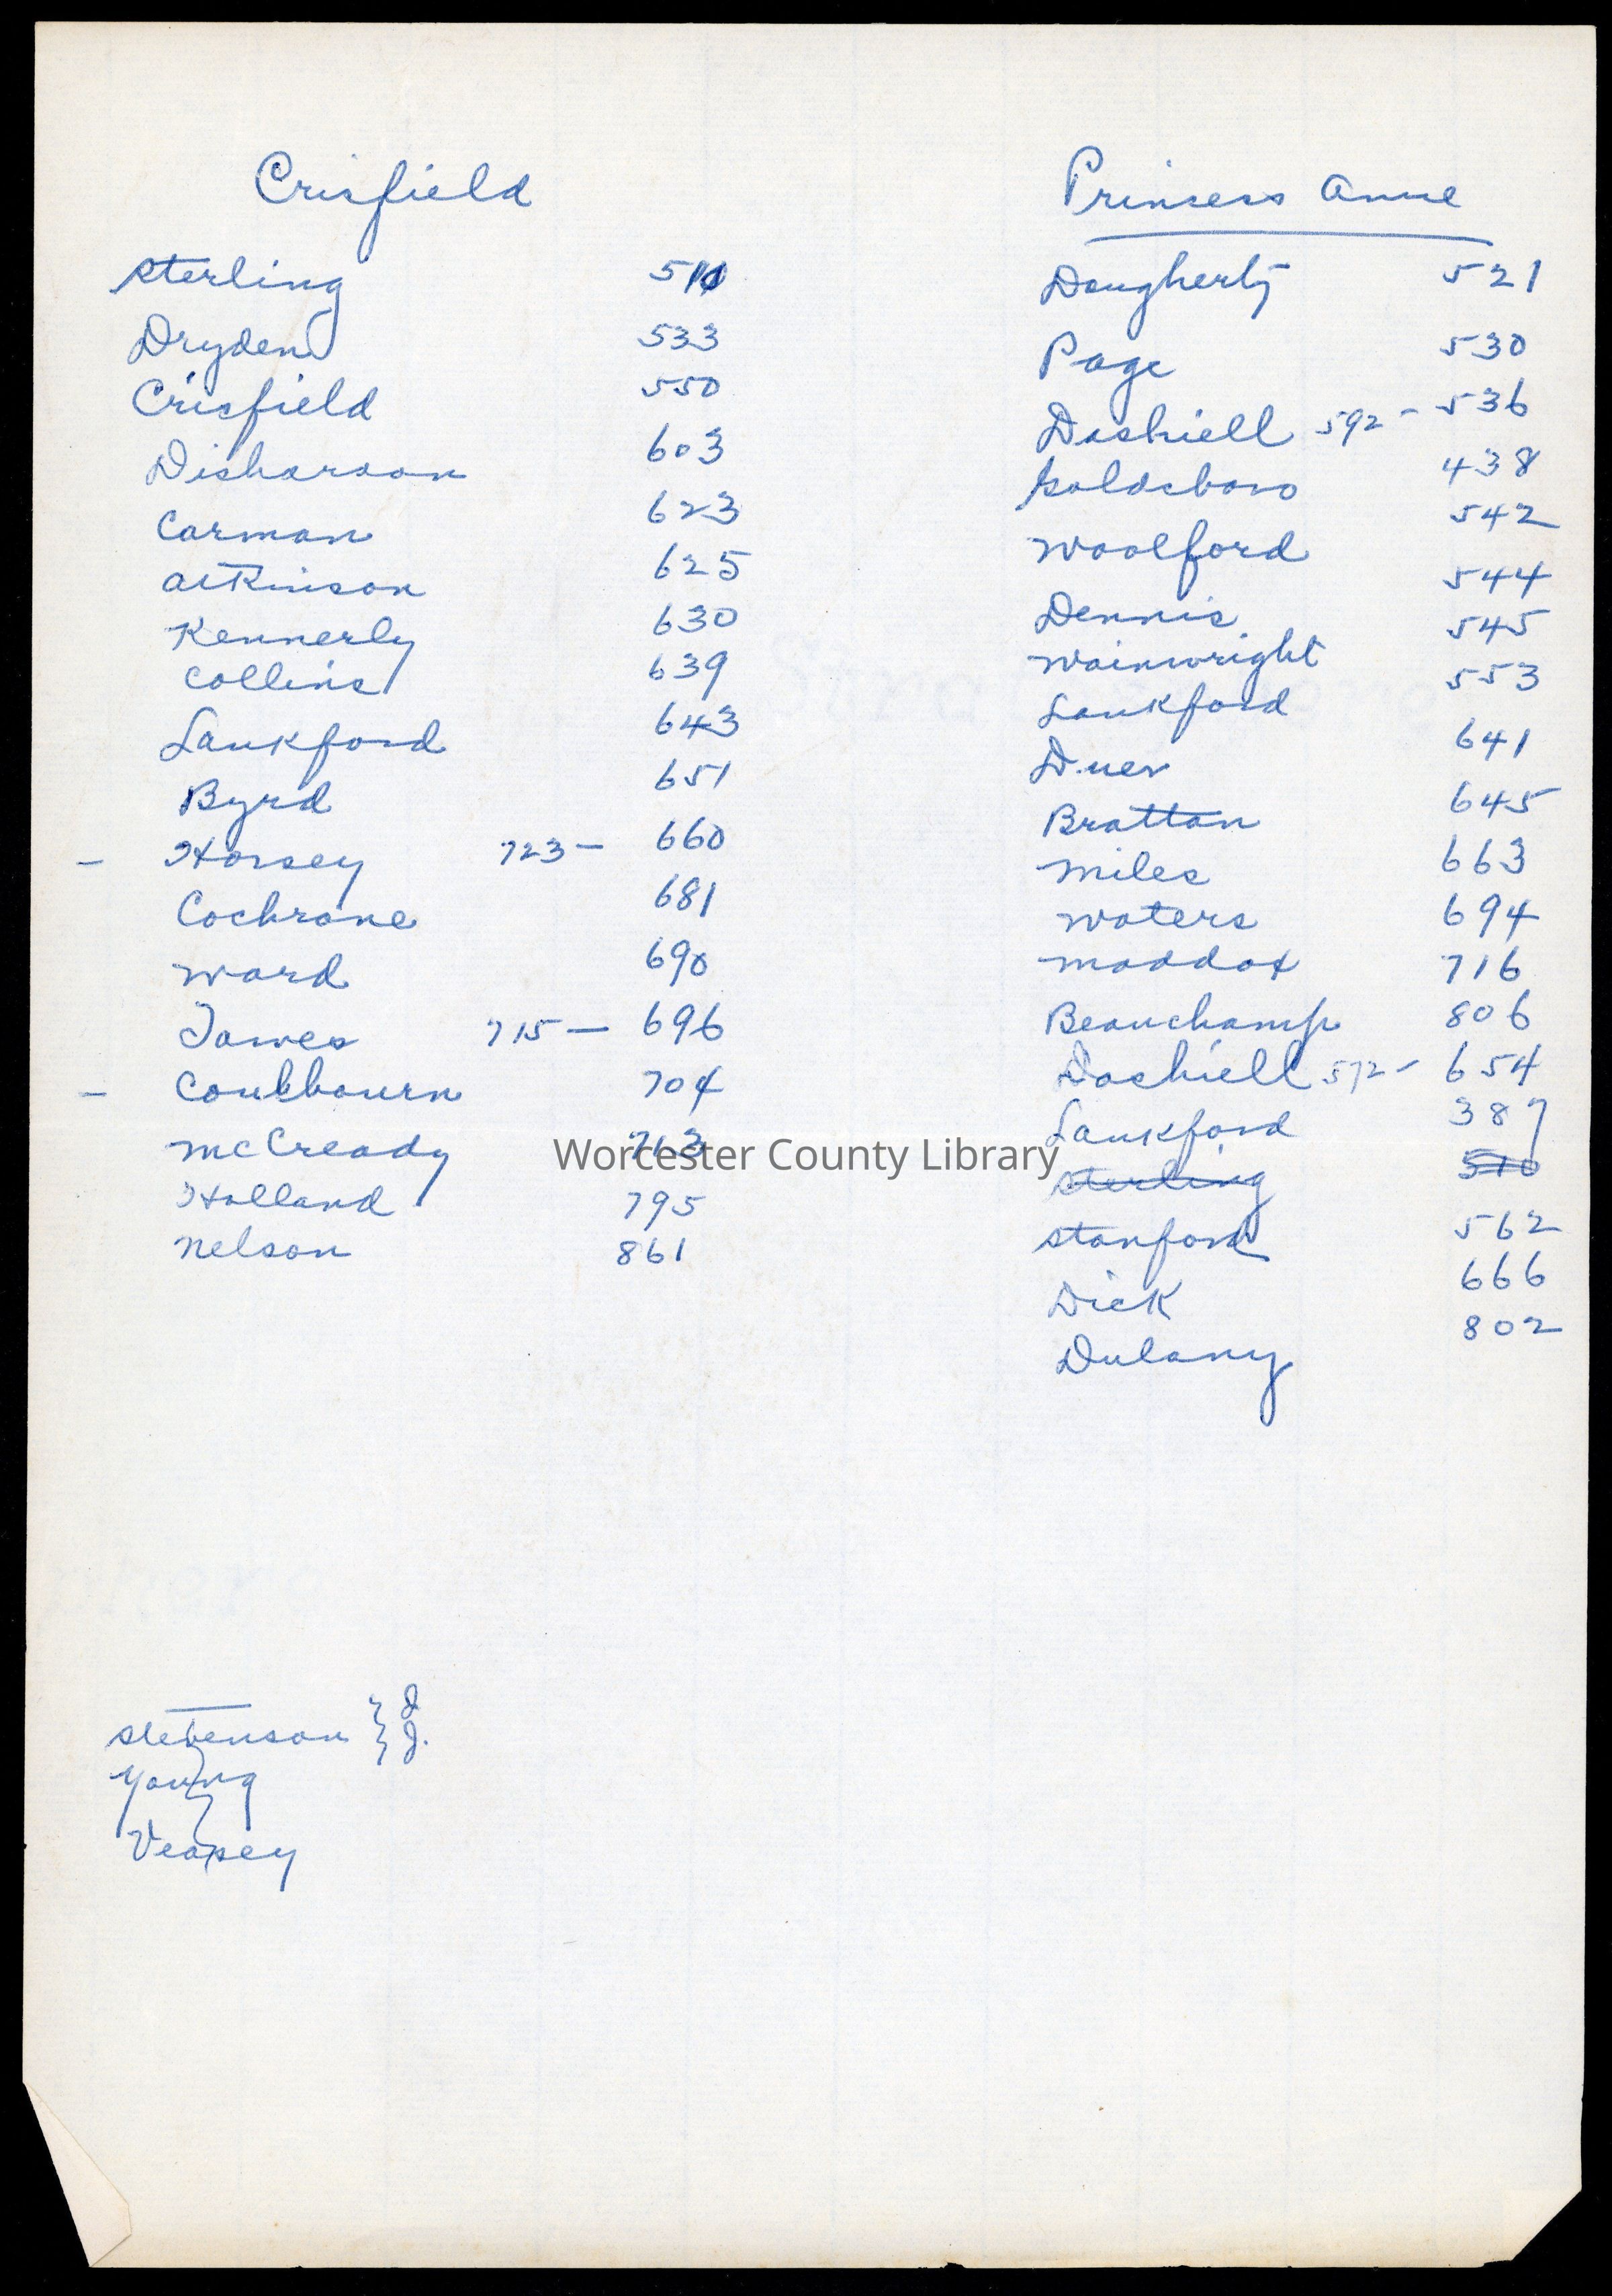 Crisfield
Sterling 510
Dryden 533
Crisfield 550
Disharoon 603
Carman 623
Atkinson 625
Kennerly 630
Collins 639
Lankford 643
Byrd 651
- Horsey 723 - 660
Cochrane 681
Ward 690
Tawes 715 - 696
- Coulbourn 704
McCready 713
Holland 795
Nelson 861
Stevenson } J.
Young
Veasey
Princess Anne
Dougherty 521
Page 530
Dashiell 592 - 536
Goldsboro 438
Woolford 542
Dennis 544
Wainwright 545
Lankford 553
Duer 641
Brattan 645
Miles 663
Waters 694
Maddox 716
Beauchamp 806
Dashiell 572 - 654
Lankford 387
Sterling 510
Stanford 562
Dick 666
Dulany 802
Worcester County Library